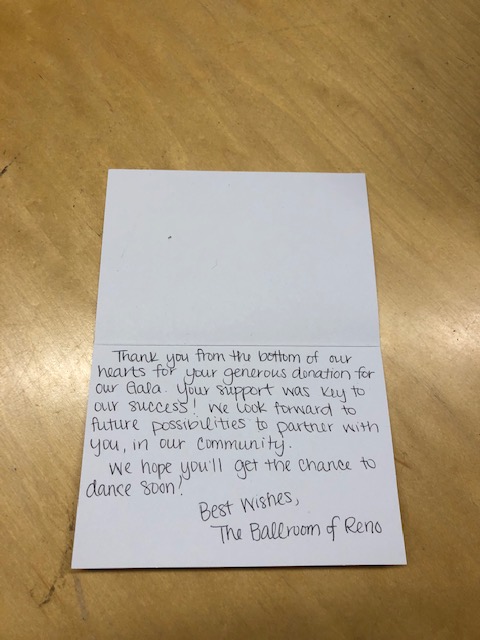 Thank you from the bottom of our
hearts for your generous donation for
our Gala. Your support was key to
our success! We look forward to
future possibilities to partner with
you, in our community.
We hope you'll get the chance to
dance soon!
Best Wishes,
The Ballroom of Reno